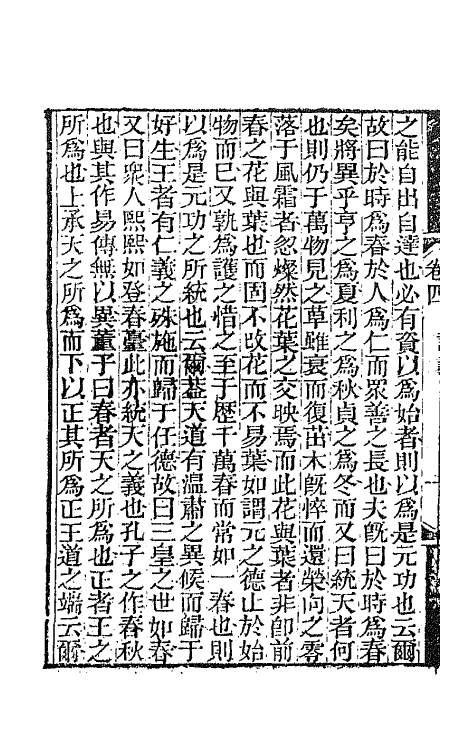 之能自出自達也必有資以為始者則以為是元功也云爾
故曰於時為春於人為仁而眾善之長也夫既曰於時為春
矣將異乎亨之為夏利之為秋貞之為冬而又曰統天者何
也則仍于萬物見之草雖衰而復茁木既悴而還榮向之零
落于風霜者忽燦然花葉之交映焉而此花與葉者非卽前
春之花與葉也而固不改花而不易葉如謂元之德止於始
物而已又孰為護之惜之至于歷千萬春而常如一春也則
以為是元功之所統也云爾葢天道有温肅之異候而歸于
好生王者有仁義之殊施而歸于任德故曰三皇之世如春
又曰衆人熙熙如登春臺此亦統天之義也孔子之作春秋
也與其作易傳無以異董子曰春者天之所為也正者王之
所為也上承天之所為而下以正其所為正王道之端云爾
卷四